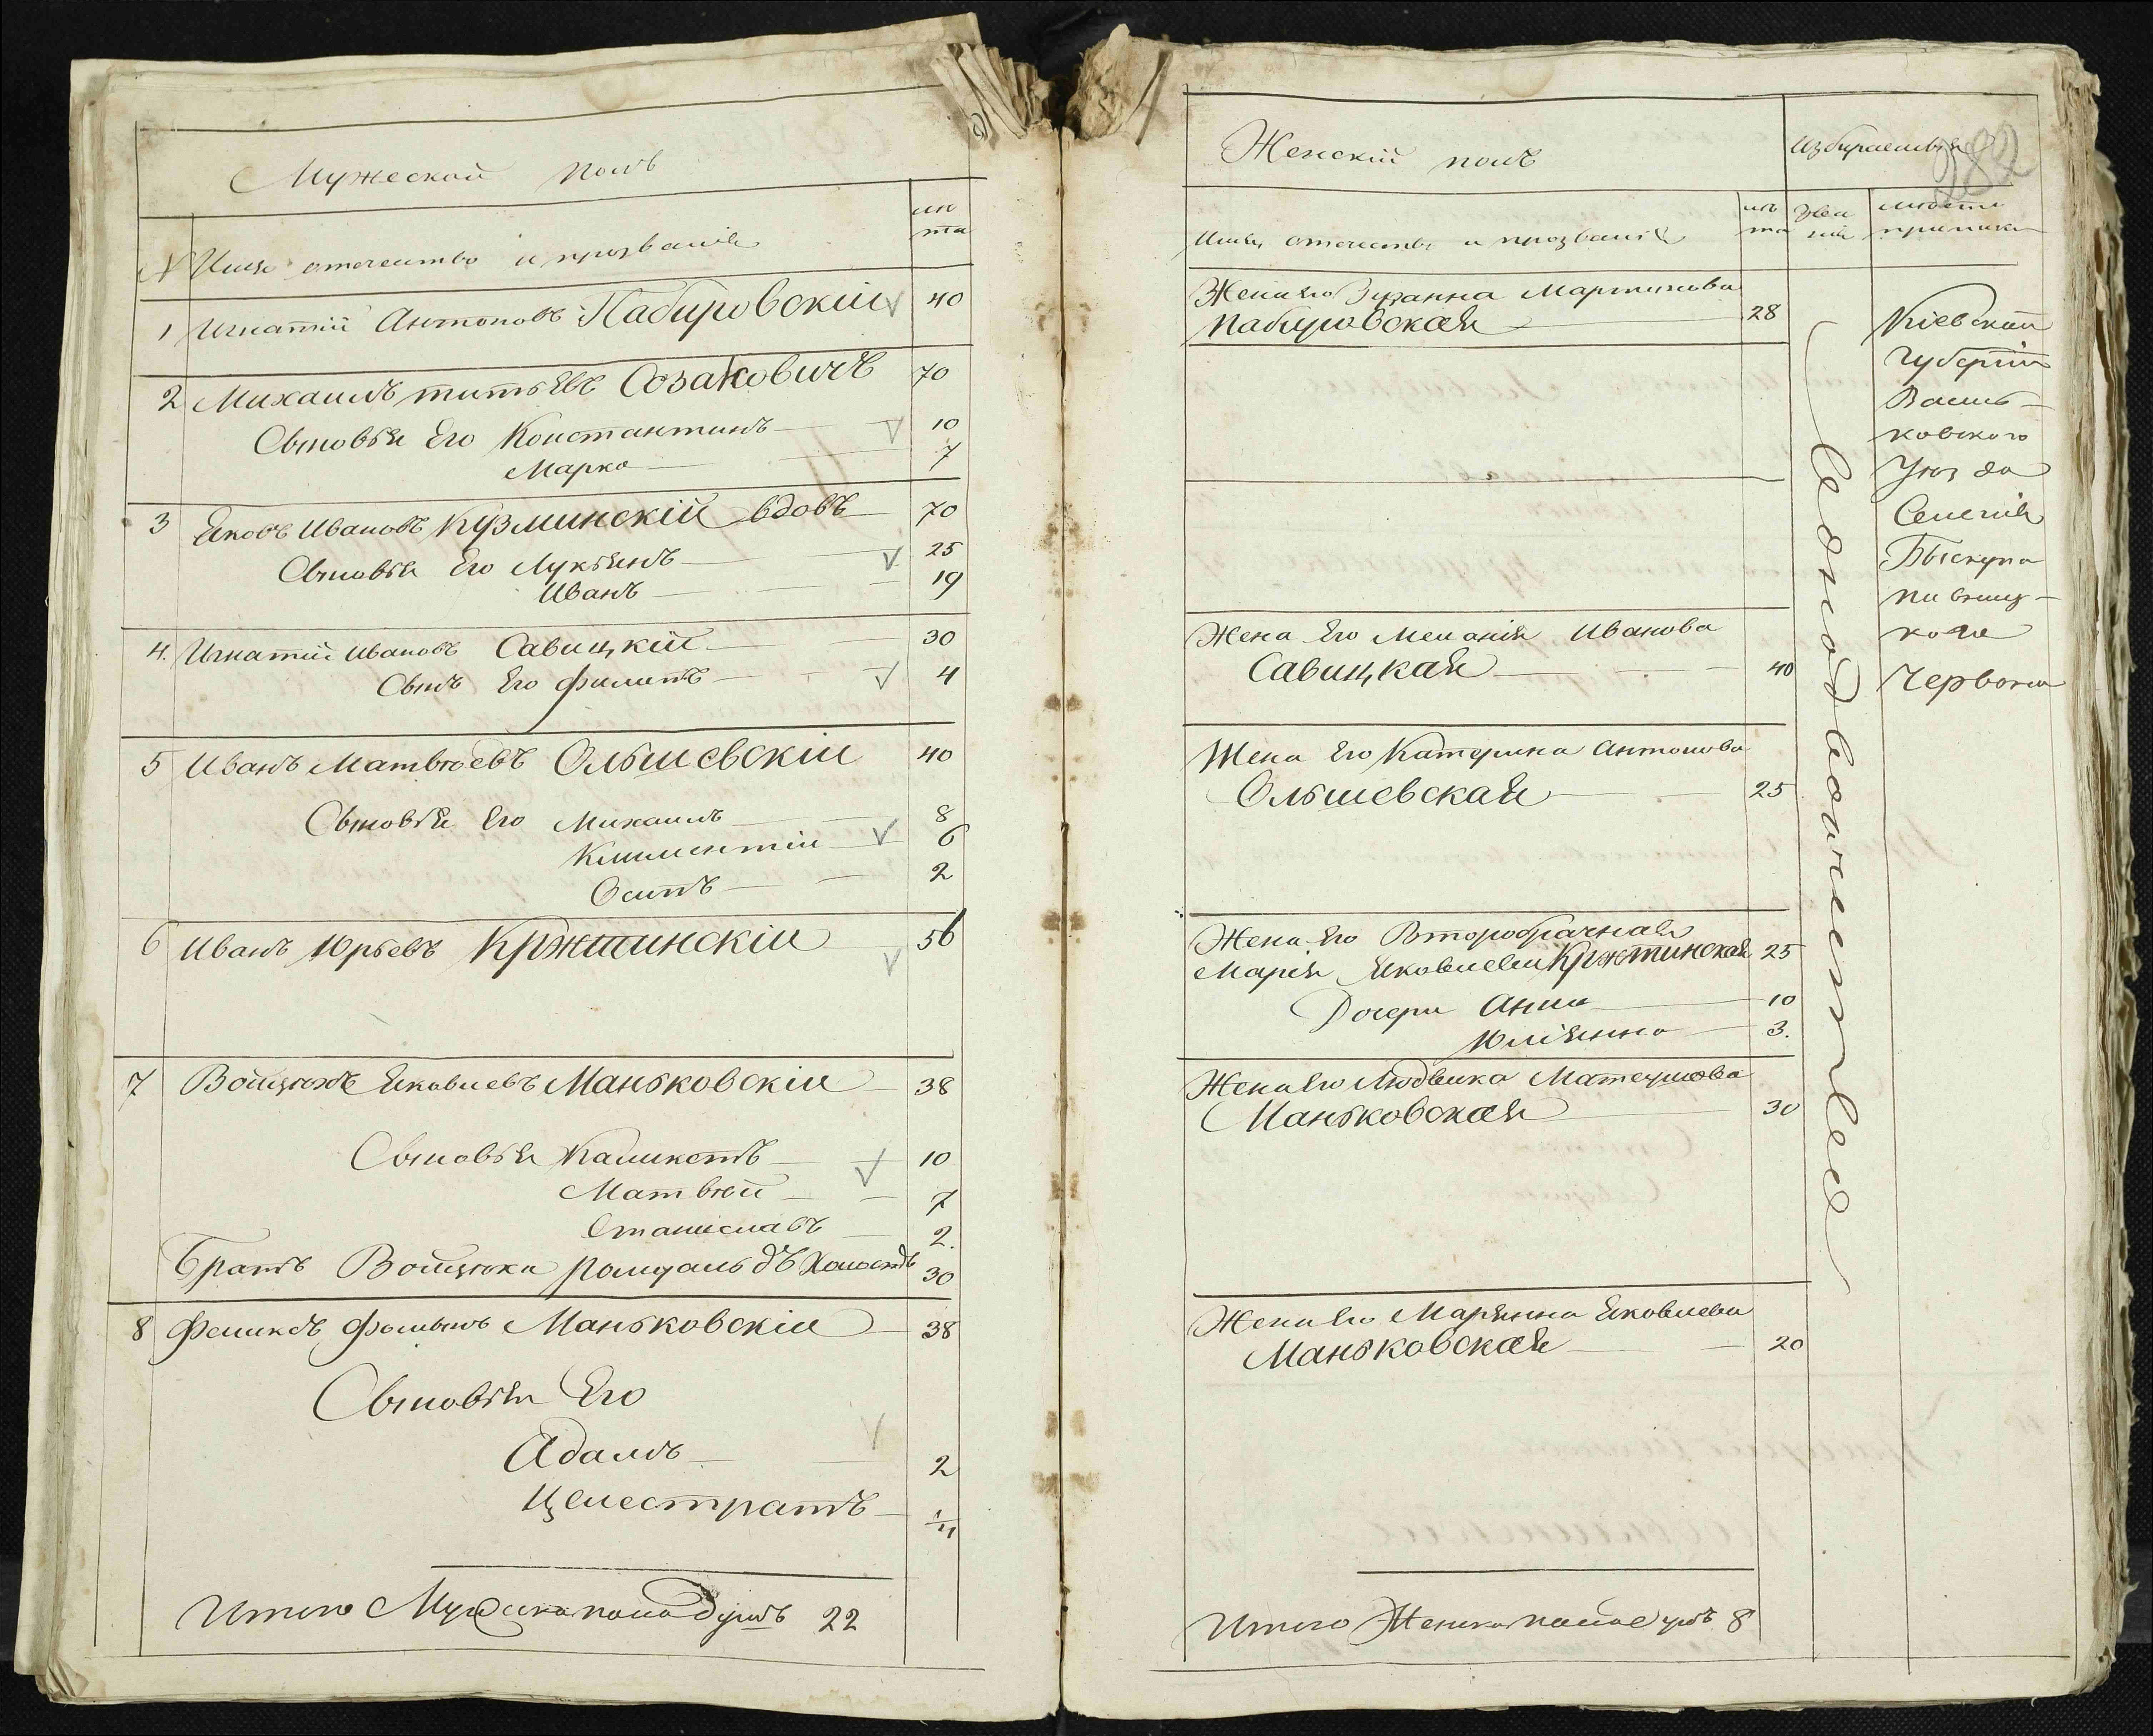 Мужеской полъ
ле
та
№ Имя отечество и прозваніе
1 Игнатій Антоновъ Пабировскій 40
2 Михаилъ титовъ Созаковичъ 70
Сыновья Его Константинъ 10
Марко 7
3 Яковъ Ивановъ Кузминскій вдовъ 70
Сыновья Его Лукьянъ 25
Иванъ 19
4. Игнатій Ивановъ Савицкій 30
Сынъ Его Филипъ 4
5 Иванъ Матвѣевъ Ольшевскій 40
Сыновья Его Михаилъ 8
Климентій 6
Осипъ 2
6 Иванъ Юрьевъ 56
7 Войцѣхъ Яковлевъ Маньковскій 38
Сыновья Каликстъ 10
Матвѣй 7
Станиславъ 2.
Братъ Войцѣха Ромуальдъ Холостъ 30
8 Феликсъ Маньковскій 38
Сыновья Его
Адамъ 2
Целестратъ 1/4
Итого Мужска пола душъ 22
282
Женскій полъ
Избираемыя
Имя, отечество и прозваніе
лѣ
та
зва
ніе
мѣсто
приписки
Жена его Зузанна Мартинова
Пабировская 28
Жена Его Меланія Иванова
Савицкая 40
Жена Его Катерина Антонова
Ольшевская 25
Жена Его Второбрачная
Марія Яковлева 25
Дочери Анна 10
Юліянна 3.
Жена Его Людвика Матеушова
Маньковская 30
Жена Его Маріянна Яковлева
Маньковская 20
Итого Женска пола душъ 8
Кіевской
Губерніи
Василь-
ковского
Уезда
Селенія
Пыскупа
Червона